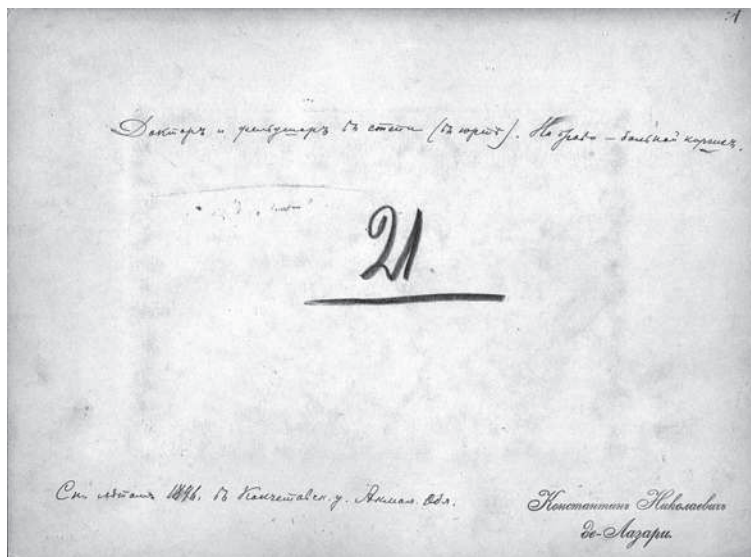 1
Докторъ и фельдшеръ въ степи (въ юртѣ). Направо – больной
21.
Сн. лѣтомъ 1896. въ Кокчетавск. у. Акмол. Обл.
Константинъ Николаевичъ
де-Лазари.